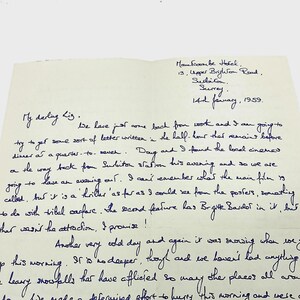 Hotel,
13, Upper Brighton Road,
Surbiton,
Surrey
14th January, 1959.
My darling Liz,
We have just come back from work and I am going to
try to get some sort of letter written in the half hour that remains before
dinner at a quarter to seven. Doug and I found the local cinemas
on the way back from Surbiton station this evening and so we are
going to have an evening out. I can't remember what the main film is
called but it is a 'thriller' as far as I could see from the posters, something
to do with tribal warfare. The second feature has Brigitte Bardot in it, but
that wasn't the attraction, I promise!
Another very cold day and again it was snowing when we
up this morning. It is no deeper, though and we haven't had anything
heavy snowfalls that have afflicted so many other places all around
We made a determined effort to hurry this morning and we